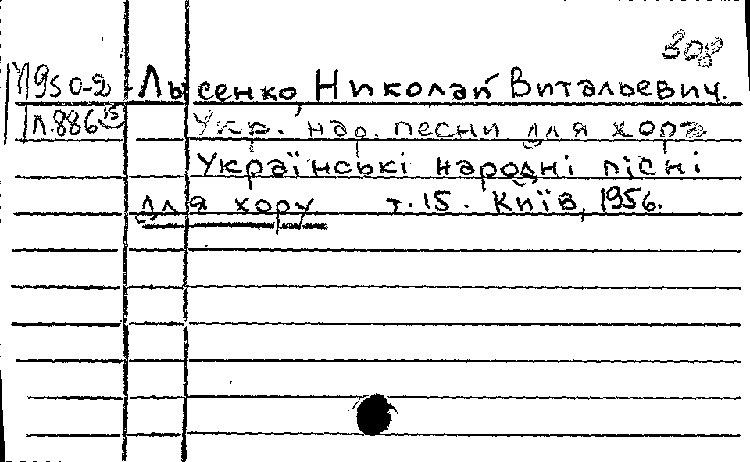 308
М950-2 Лысенко, Николай Витальевич.
Л.886 15 Укр. нар. песни для хора
Українські народні пісні
для хору т. 15. Київ, 1956.